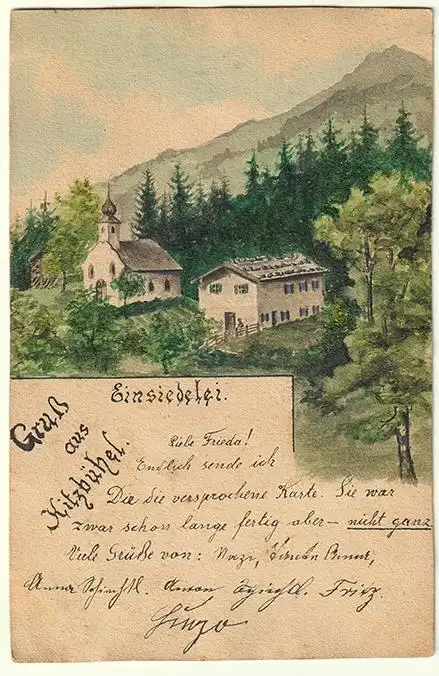 Einsiedelei.
Gruß
aus
Kitzbühel.
Liebe Frieda!
Endlich sende ich
Dir die versprochene Karte. Sie war
zwar schon lange fertig aber – nicht ganz
Viele Grüße von: Nazi, Tante
Anna Schiechtl. Anton Schiechtl. Fritz.
Hugo